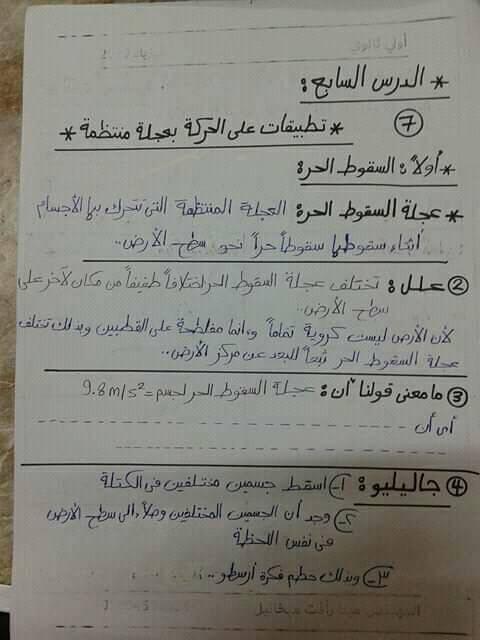 أولى ثانوى
* الدرس السابع:
7
* تطبيقات على الحركة بعجلة منتظمة *
* أولاً: السقوط الحر:
* عجلة السقوط الحر: العجلة المنتظمة التى تتحرك بها الأجسام
أثناء سقوطها سقوطاً حراً نحو سطح الأرض..
2 علل: تختلف عجلة السقوط الحر اختلافاً طفيفاً من مكان لآخر على
سطح الأرض..
لأن الأرض ليست كروية تماماً وإنما مفلطحة على القطبين وبذلك تختلف
عجلة السقوط الحر تبعاً للبعد عن مركز الأرض..
3 ما معنى قولنا أن: عجلة السقوط الحر لجسم = 9.8 m/s²
أى أن
4 جاليليو: 1- اسقط جسمين مختلفين فى الكتلة
2- وجد أن الجسمين المختلفين وصلا إلى سطح الأرض
فى نفس اللحظة
3- وبذلك حطم فكرة أرسطو..